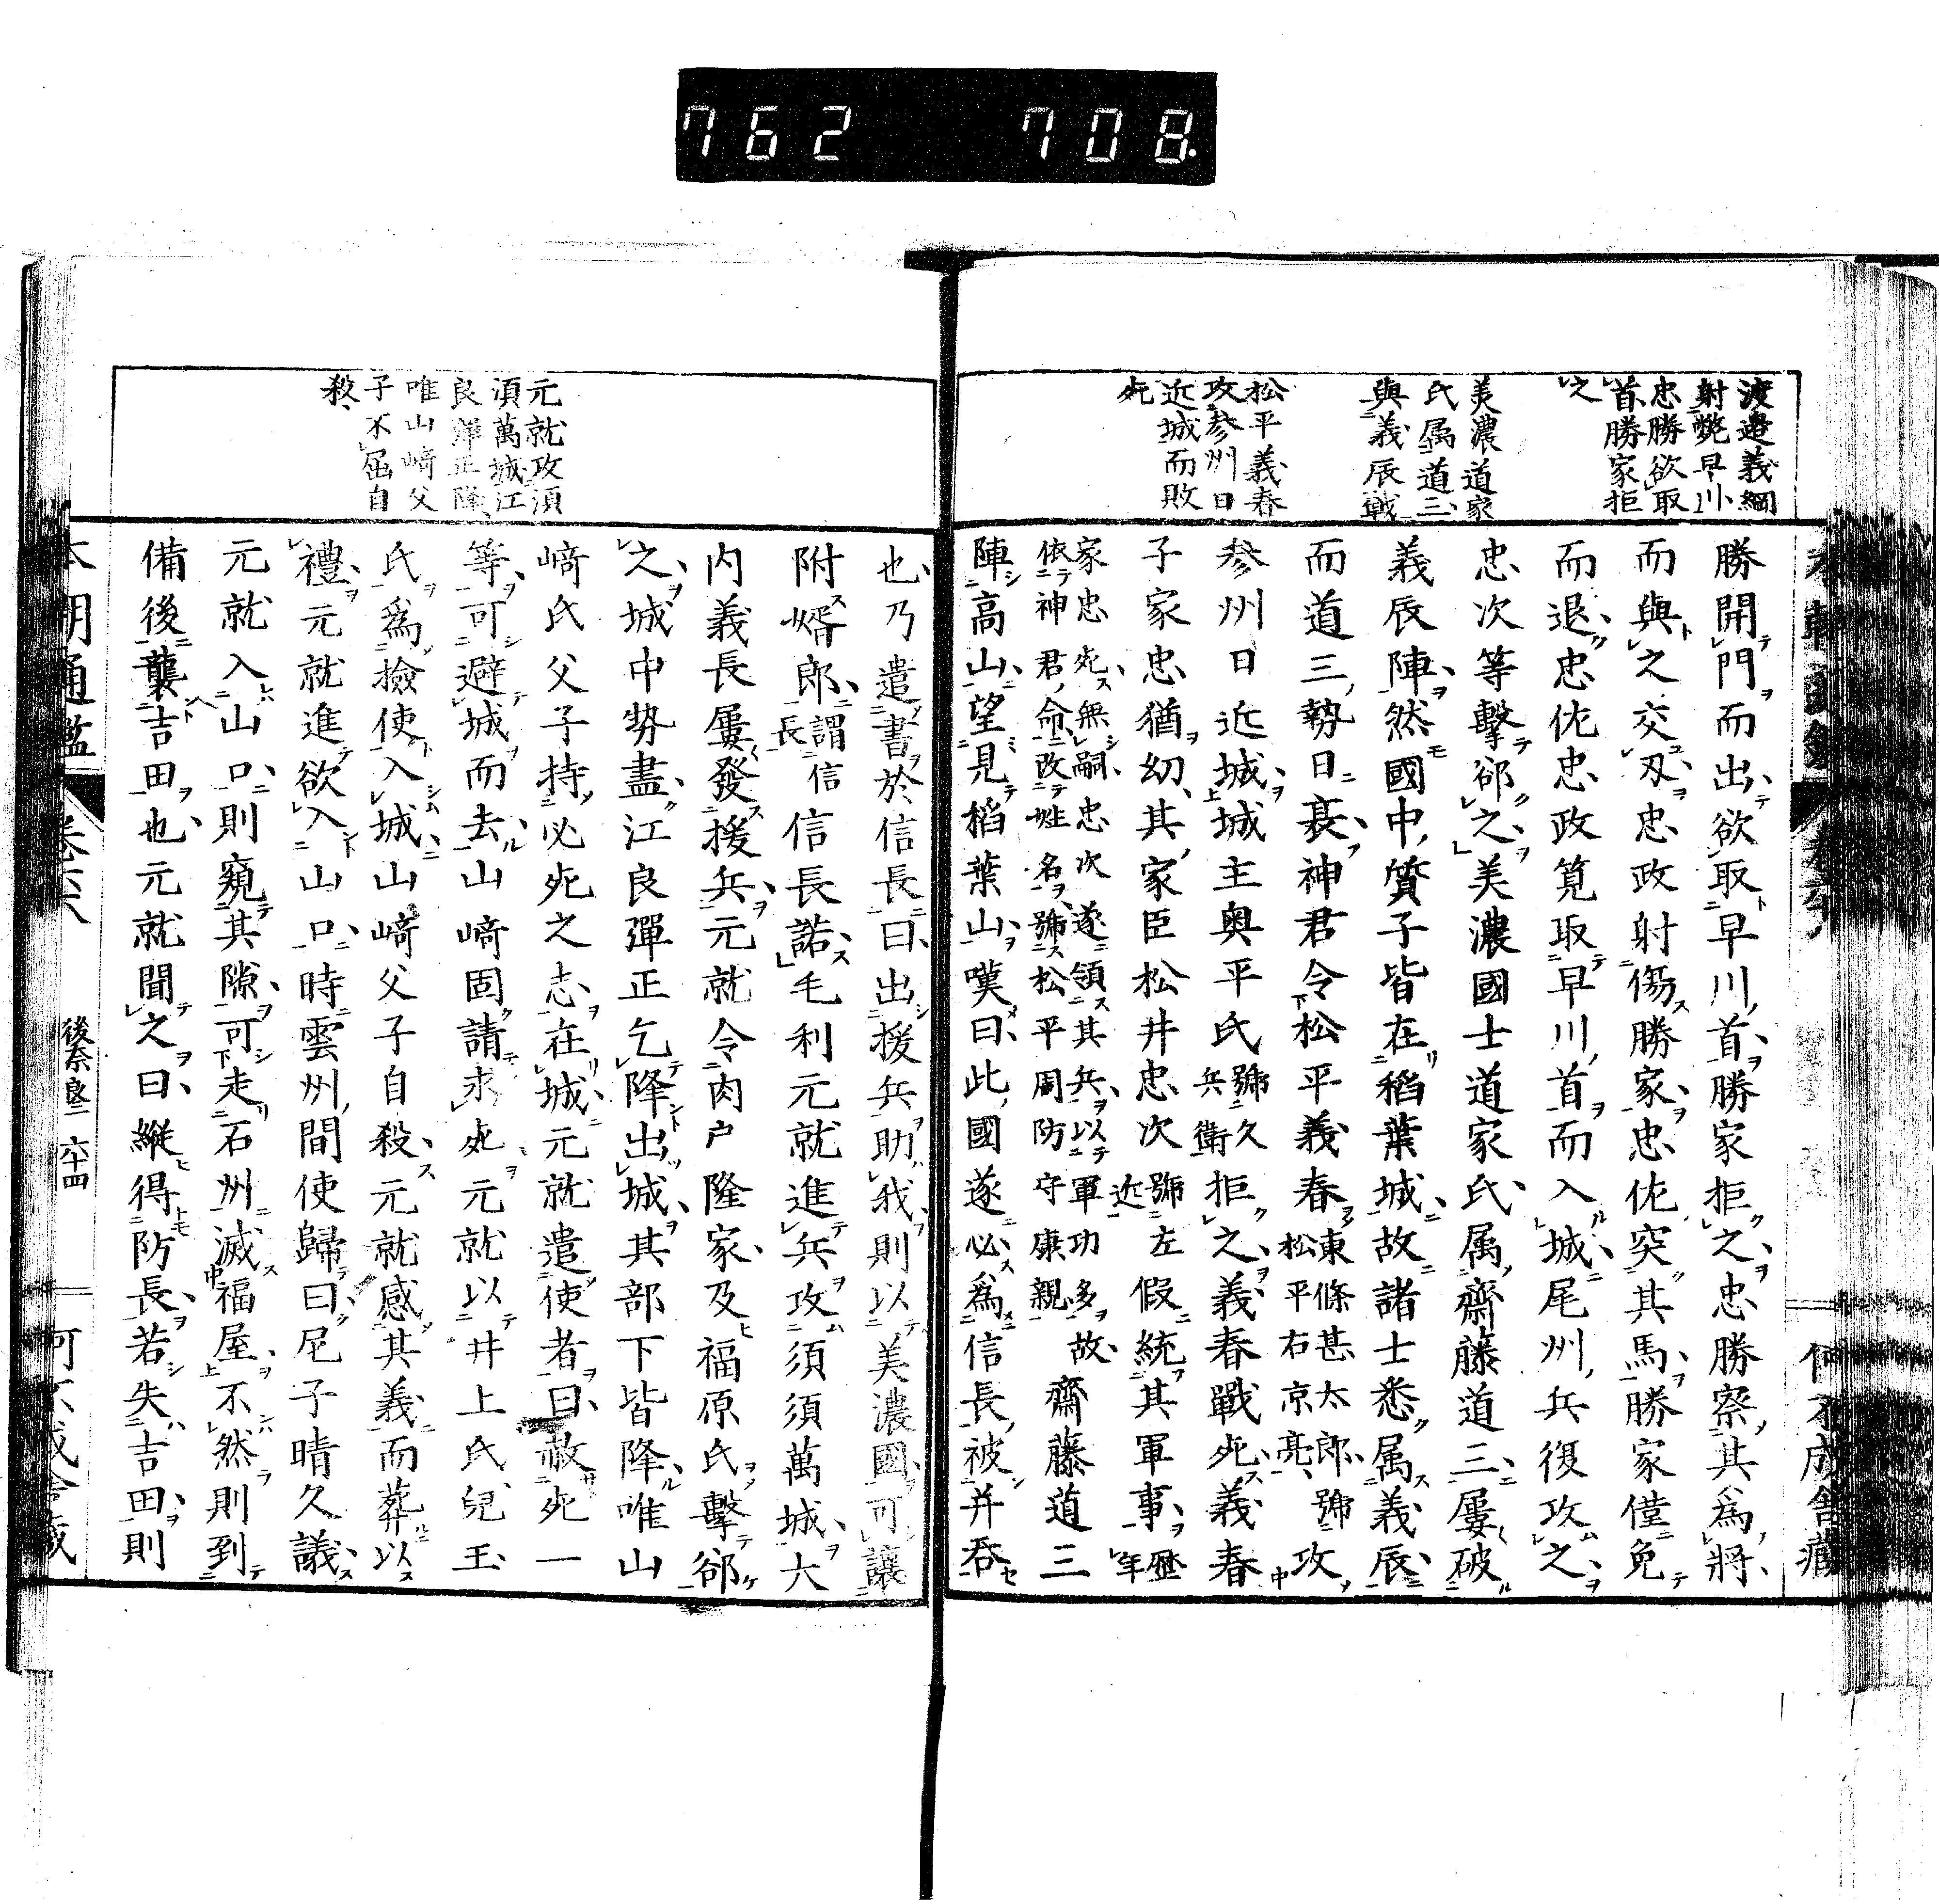 762 708.
渡邉義綱
射斃早川
忠勝欲取
首勝家拒
之
美濃道家
氏属道三
與義辰戰
松平義春
攻參州日
近城而敗
死
勝開門而出欲取早川首勝家拒之忠勝察其爲將
而與之交刃忠政射傷勝家忠佐突其馬勝家僅免
而退忠佐忠政筧取早川首而入城尾州兵復攻之
忠次等擊卻之美濃國士道家氏属齋藤道三屢破
義辰陣然國中質子皆在稻葉城故諸士悉属義辰
而道三勢日衰神君令松平義春東條甚太郎號松平右京亮攻
參州日近城城主奥平氏號久兵衛拒之義春戰死義春
子家忠猶幼其家臣松井忠次號左近假統其軍事歷年
家忠死無嗣忠次遂領其兵以軍功多故依神君命改姓名號松平周防守康親齋藤道三
陣高山望見稻葉山嘆曰此國遂必爲信長被并吞
本朝通鑑 卷六八 後奈良二 六十四
元就攻須
須萬城江
良彈正降
唯山﨑父
子不屈自
殺
也乃遣書於信長曰出援兵助我則以美濃國可讓
附婿郎謂信長信長諾毛利元就進兵攻須須萬城大
内義長屢發援兵元就令肉戸隆家及福原氏擊卻
之城中勢盡江良彈正乞降出城其部下皆降唯山
﨑氏父子持必死之志在城元就遣使者曰赦死一
等可避城而去山﨑固請求死元就以井上氏兒玉
氏爲撿使入城山﨑父子自殺元就感其義而葬以
禮元就進欲入山口時雲州間使歸曰尼子晴久議
元就入山口則窺其隙可走石州滅福屋不然則到
備後襲吉田也元就聞之曰縱得防長若失吉田則